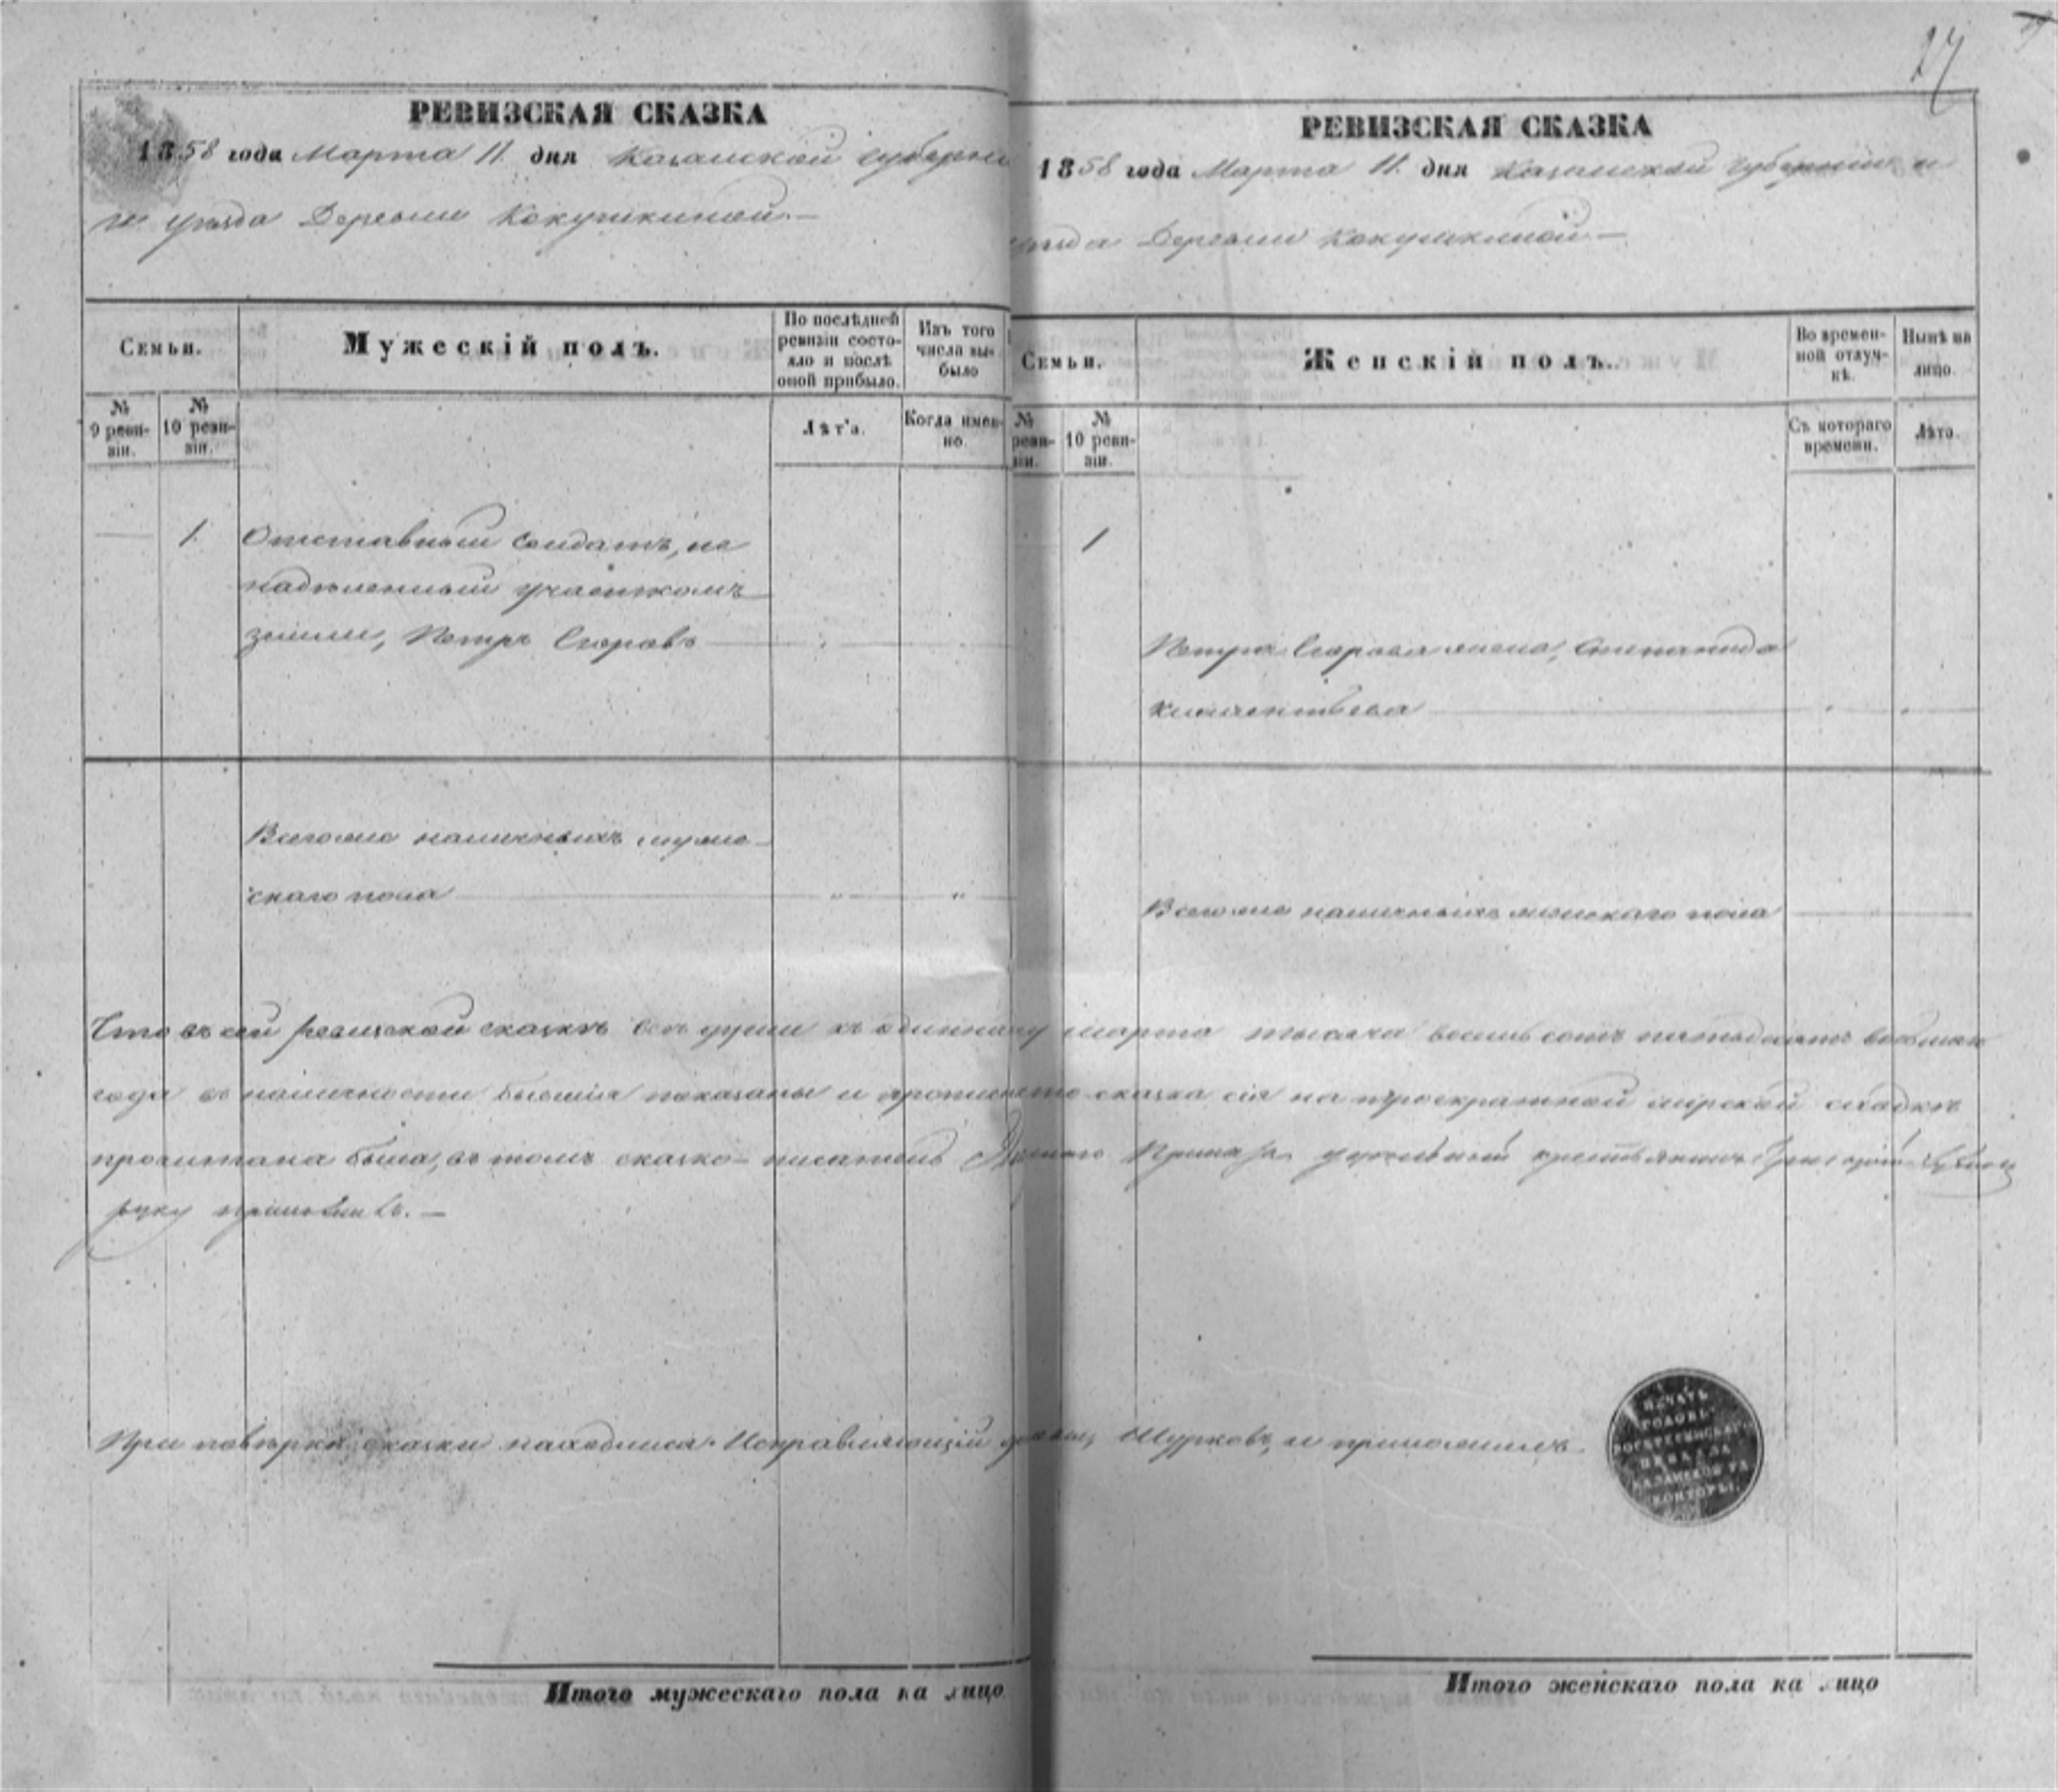 27
РЕВИЗСКАЯ СКАЗКА
1858 года Марта 11 дня Казанской губерніи
и уѣзда Деревни Кокушкиной.—
Семьи.
Мужескій полъ.
По послѣдней ревизіи состояло и послѣ оной прибыло.
Изъ того числа выбыло
№ 9 ревизіи.
№ 10 ревизіи.
Лѣта.
Когда именно.
1.
Отставный солдатъ, не
надѣленный участкомъ
земли, Петръ Егоровъ
Всего же наличныхъ муже-
скаго пола
РЕВИЗСКАЯ СКАЗКА
1858 года Марта 11 дня Казанской губерніи и
уѣзда Деревни Кокушкиной.—
Семьи.
Женскій полъ.
Во временной отлучкѣ.
Нынѣ на лицо.
№ ревизіи.
№ 10 ревизіи.
Съ котораго времени.
Лѣта.
1
Петра Егорова жена, Степанида
Климентьева
Всего же наличныхъ женскаго пола
Что въ сей ревизской сказкѣ всѣ души къ одиннадцатому марта тысяча восемь сотъ пятьдесятъ восьмаго
года въ наличности бывшія показаны и прописна сказка сія на троекратной мірской сходкѣ
прочитана была, въ томъ сказко-писатель Приказа удѣльный крестьянинъ Григорій
руку приложилъ.—
При повѣркѣ сказки находился Исправляющій Шурковъ, и приложилъ
ПЕЧАТЬ
ГОЛОВЫ
ВОСКРЕСЕНСКАГО
ПРИКАЗА
КАЗАНСКОЙ УД.
КОНТОРЫ
Итого мужескаго пола на лицо
Итого женскаго пола на лицо